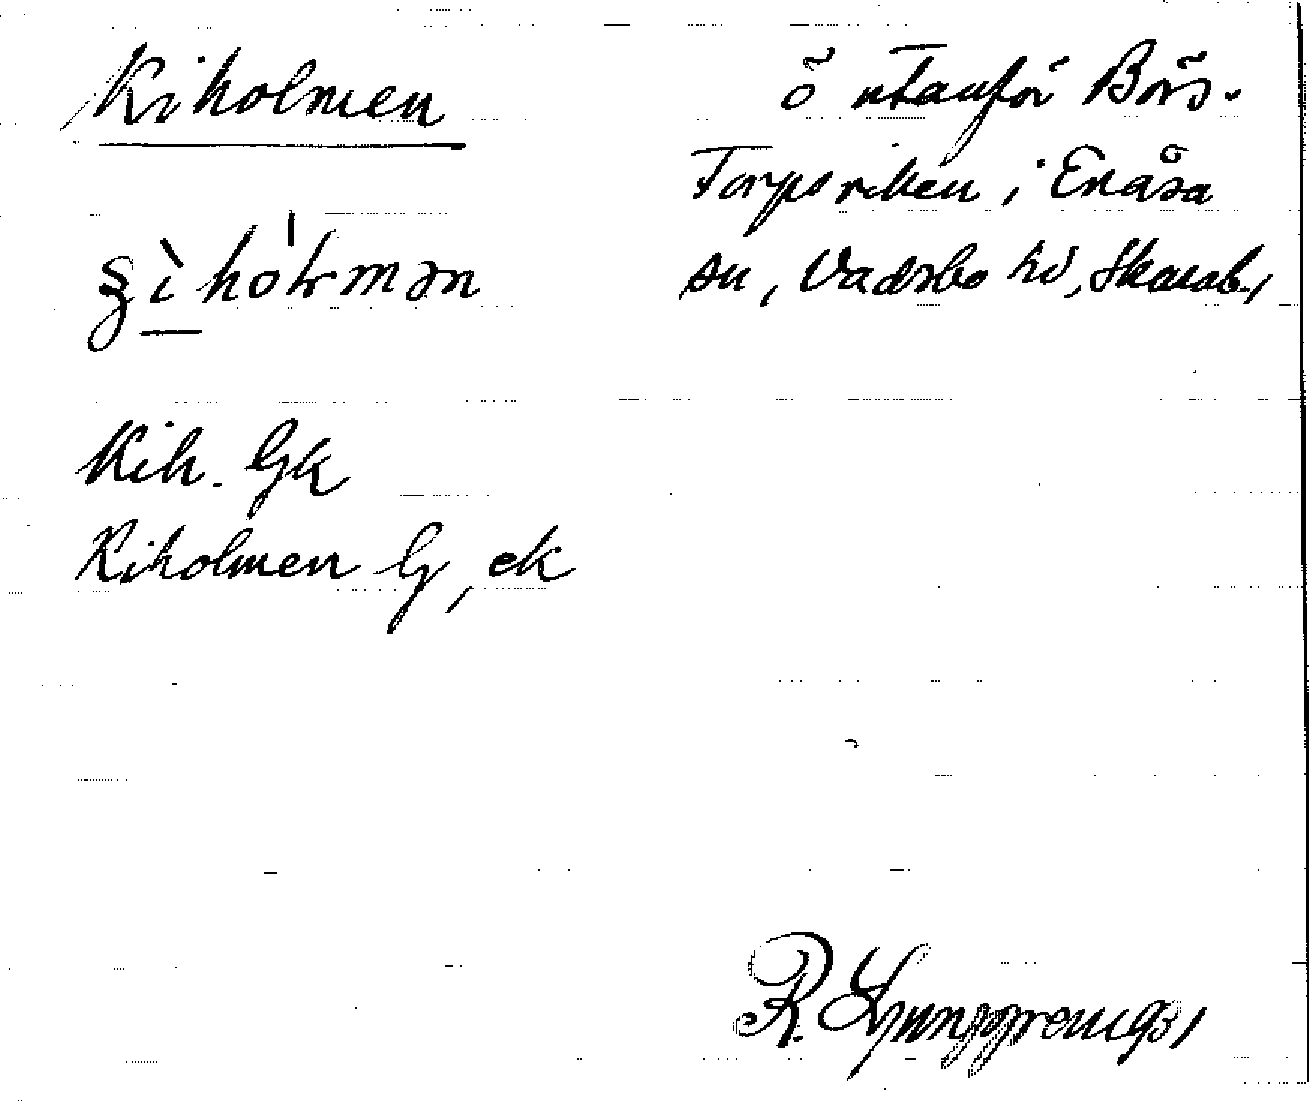 Kiholmen
ö utanför Börs-
torpsviken i Enåsa
sn, Vadsbo hd, Skarab.
Kih. Gk
Kiholmen G, ek
R. Ljunggren 1931